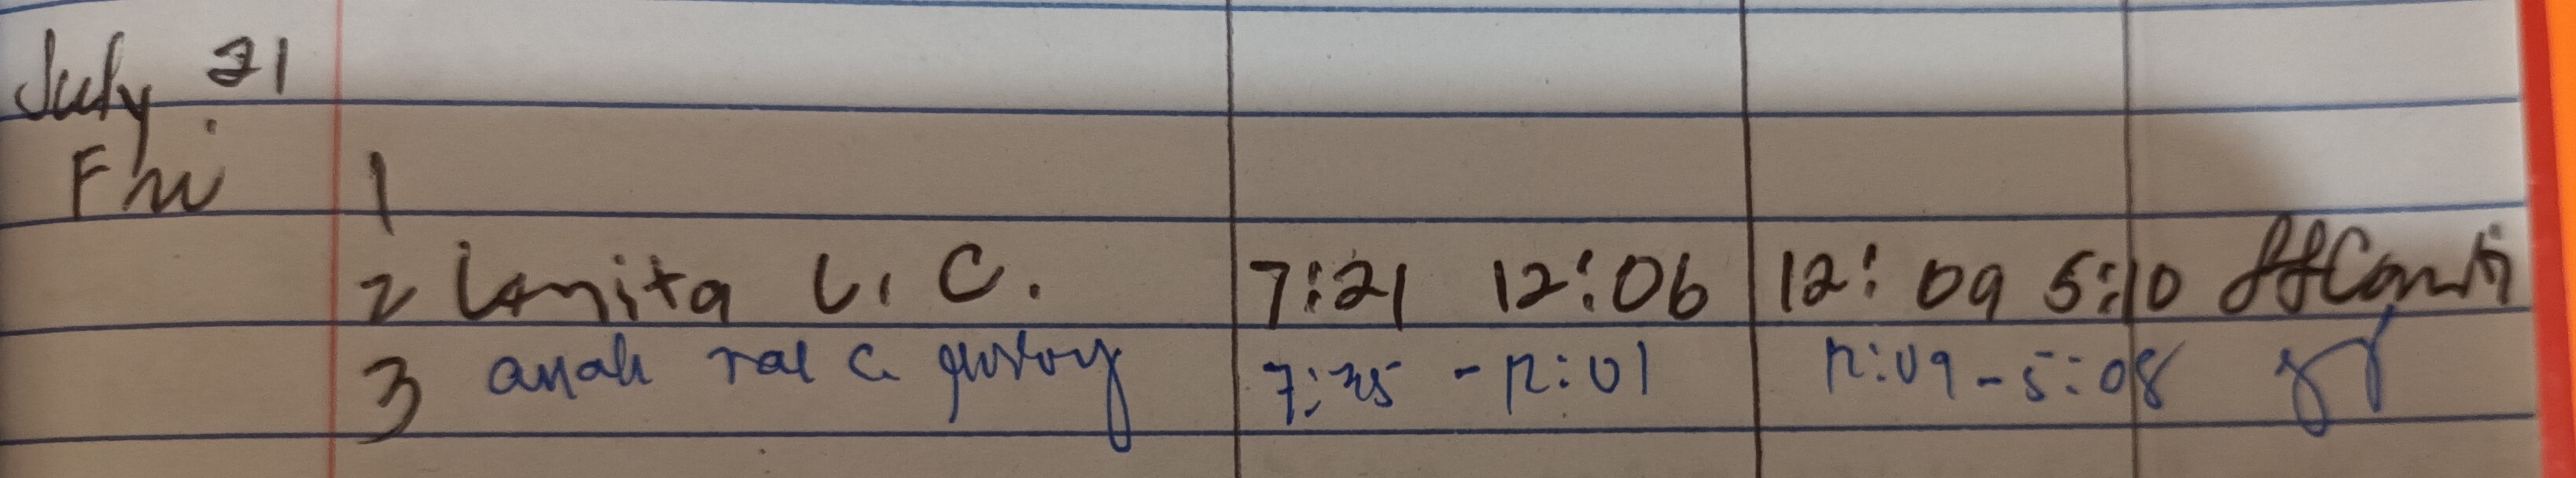 July 21
Fri 1
2 Lanita L. C. 7:21 12:06 12:09 5:10
3 rae C. 7:25 - 12:01 12:09 - 5:08